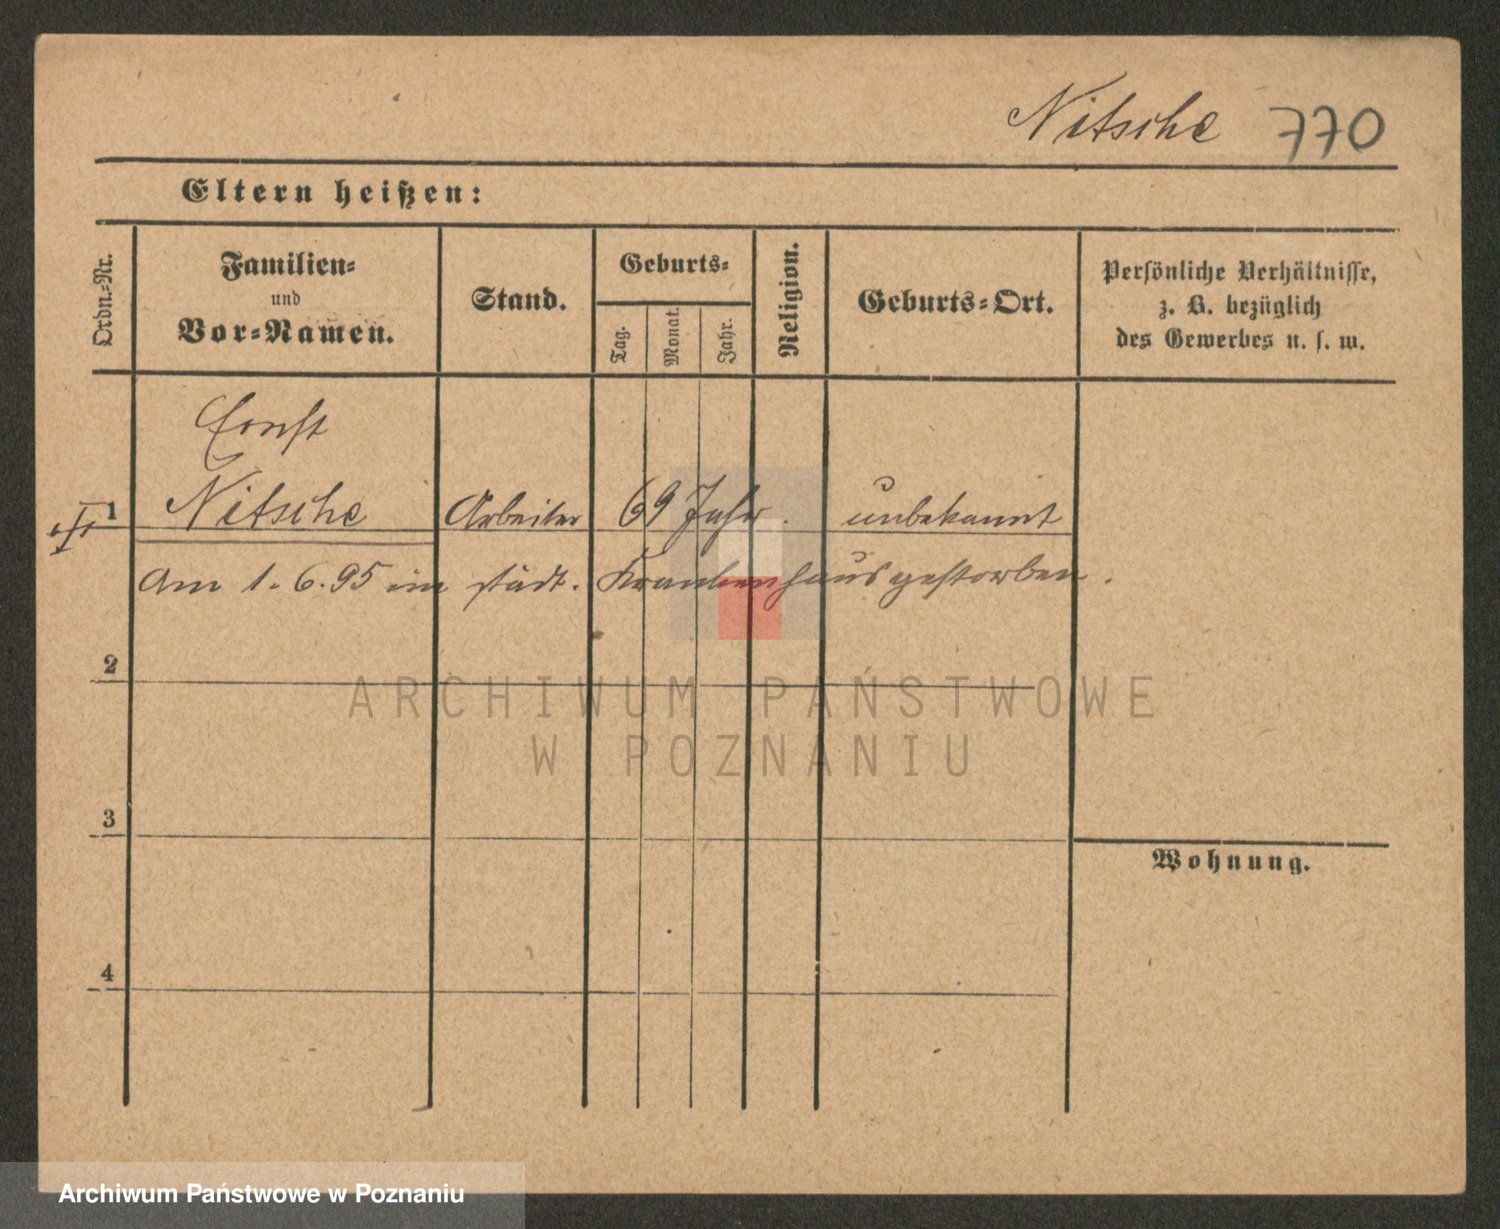 Nitsche 770
Eltern heißen:
Ordn.-Nr.
Familien-
und
Vor-Namen.
Stand.
Geburts-
Tag.
Monat.
Jahr.
Religion.
Geburts-Ort.
Persönliche Verhältnisse,
z. B. bezüglich
des Gewerbes u. s. w.
Ernst
1 Nitsche Arbeiter 69 Jahr. unbekannt
Am 1. 6. 95 im städt. Krankenhaus gestorben.
2
ARCHIWUM PAŃSTWOWE
W POZNANIU
3
Wohnung.
4
Archiwum Państwowe w Poznaniu